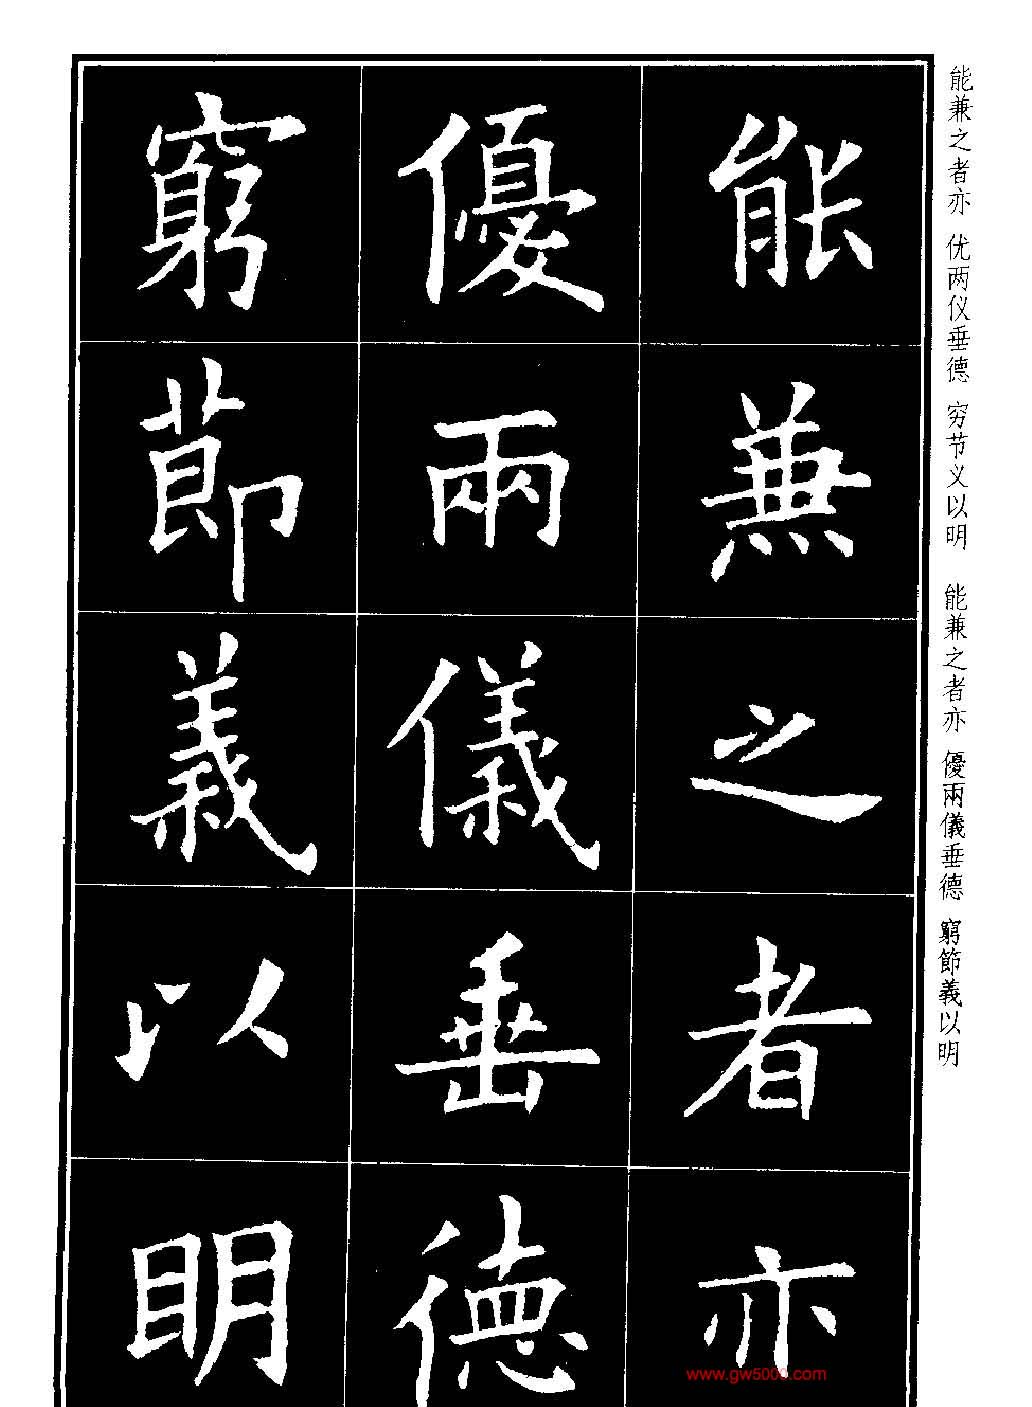 能兼之者亦 优两仪垂德 穷节义以明 能兼之者亦 優兩儀垂德 窮節義以明
能兼之者亦
優兩儀垂德
窮節義以明
www.gw5000.com